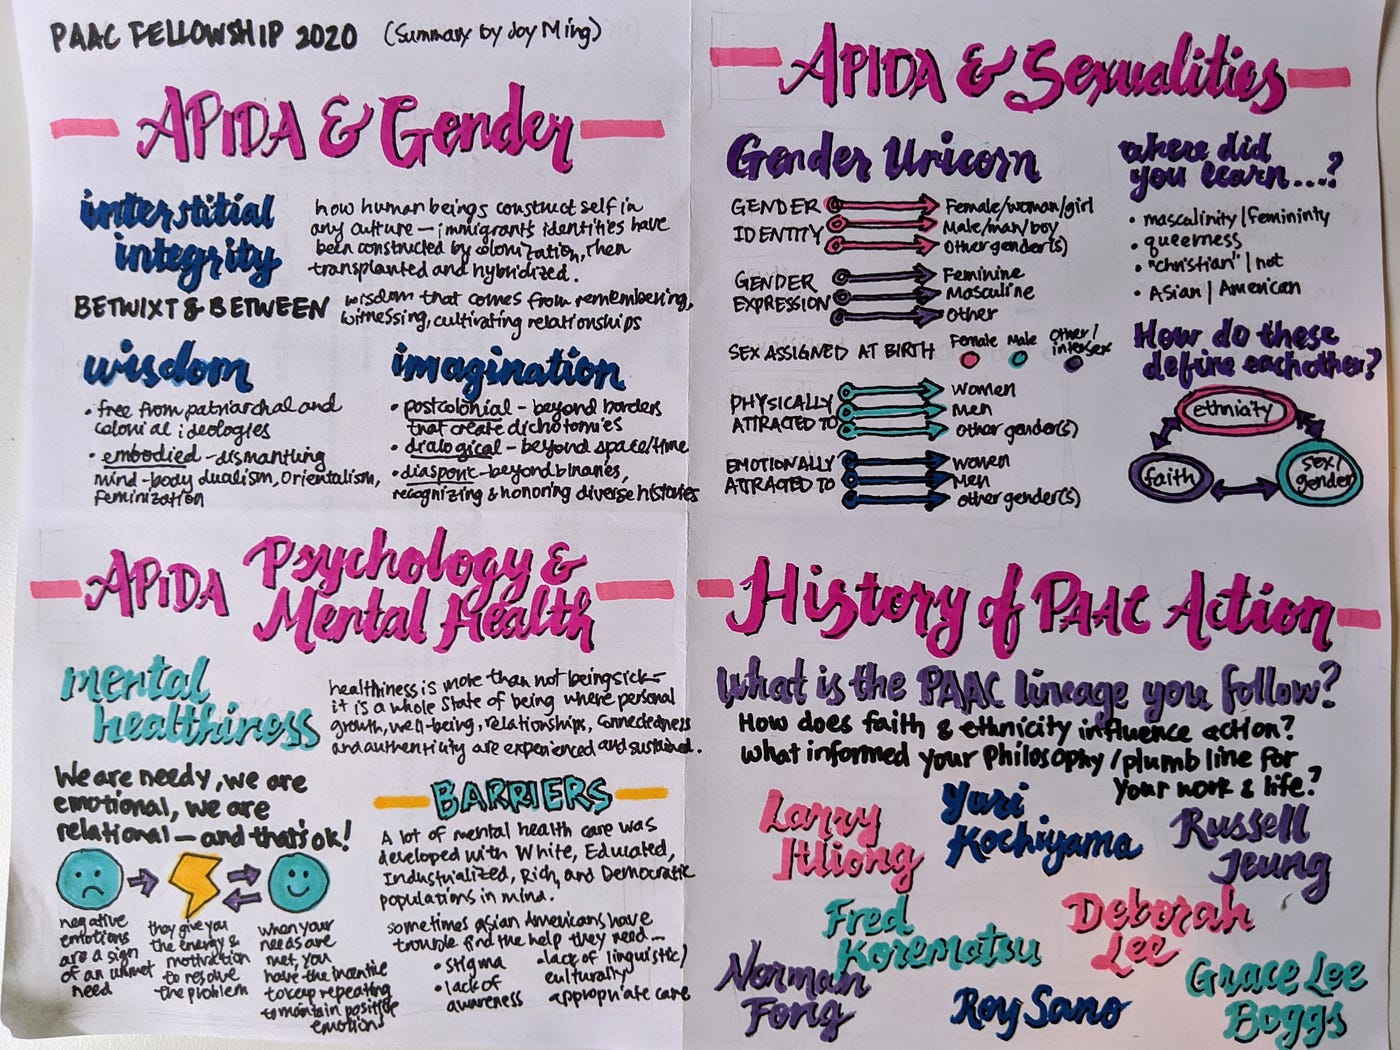 PAAC FELLOWSHIP 2020 (Summary by Joy Ming)
APIDA & Gender
interstitial
integrity
how human beings construct self in
any culture — immigrants identities have
been constructed by colonization, then
transplanted and hybridized.
BETWIXT & BETWEEN
wisdom that comes from remembering,
witnessing, cultivating relationships
wisdom
• free from patriarchal and
colonial ideologies
• embodied - dismantling
mind-body dualism, Orientalism,
feminization
imagination
• postcolonial - beyond borders
that create dichotomies
• dialogical - beyond space/time
• diasporic - beyond binaries,
recognizing & honoring diverse histories
APIDA & Sexualities
Gender Unicorn
GENDER
IDENTITY
Female/woman/girl
Male/man/boy
Other gender(s)
GENDER
EXPRESSION
Feminine
Masculine
Other
SEX ASSIGNED AT BIRTH
Female
Male
Other/
intersex
PHYSICALLY
ATTRACTED TO
women
men
other gender(s)
EMOTIONALLY
ATTRACTED TO
women
Men
other gender(s)
where did
you learn....?
• masculinity | femininty
• queerness
• "christian" | not
• Asian | American
How do these
define each other?
ethnicity
faith
sex/
gender
APIDA Psychology &
Mental Health
mental
healthiness
healthiness is more than not being sick -
it is a whole state of being where personal
growth, well-being, relationships, connectedness
and authenticity are experienced and sustained.
We are needy, we are
emotional, we are
relational — and that's ok!
negative
emotions
are a sign
of an unmet
need
they give you
the energy &
motivation
to resolve
the problem
when your
needs are
met, you
have the incentive
to keep repeating
to maintain positive
emotions
BARRIERS
A lot of mental health care was
developed with White, Educated,
Industrialized, Rich, and Democratic
populations in mind.
sometimes asian Americans have
trouble find the help they need —
• stigma
• lack of
awareness
• lack of linguistic/
culturally
appropriate care
History of PAAC Action
What is the PAAC lineage you follow?
How does faith & ethnicity influence action?
what informed your philosophy/plumb line for
your work & life?
Larry
Itliong
Yuri
Kochiyama
Russell
Jeung
Fred
Korematsu
Deborah
Lee
Norman
Fong
Roy Sano
Grace Lee
Boggs